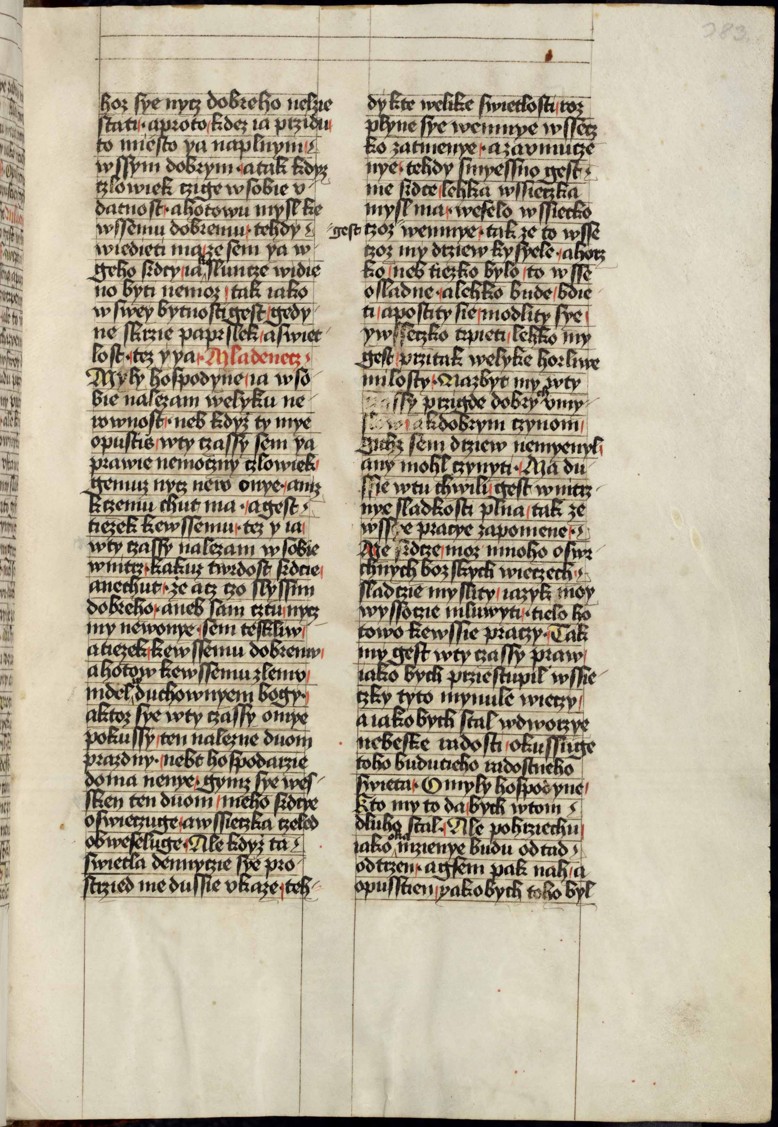 183
hoz sye nytz dobreho nelzie
stati · aproto kdez ia przidu
to miesto ya naplnym
wssym dobrym · atak kdyz
czlowiek czige wsobie v
datnost · ahotowu mysl ke
wssemu dobremu · tehdy
wiedieti ma ze sem ya w
geho srdcy ia sluncze widie
no byti nemoz tak iako
wswey bytnosti gest gedy
ne skrzie paprslek aswiet
lost · tez y ya · Mladenecz
Myly hospodyne ia wso
bie nalezam welyku ne
rownost · neb kdyz ty mye
opustis wty czassy sem ya
prawie nemoczny czlowiek
gemuz nytz new onye · aniz
kczemu chut ma · agest
tiezek kewssemu · tez y ia
wty czassy nalezam wsobie
wnitrz · kakuz twrdost srdcie
anechut · ze acz czo slyssim
dobreho · aneb sam cztu nytz
my newonye · sem teskliw
atiezek kewssemu dobremu
ahotow kewssemu zlemu
mdel duchownyem bogy
aktoz sye wty czassy omye
pokussy ten nalezne duom
prazdny · nebt hospodarzie
doma nenye · gymz sye wes
sken ten duom meho srdcye
oswieczuge awssieczka czeled
obweseluge · Ale kdyz ta
swietla dennyczie sye pro
strzied me dussie vkaze teh
dy kte welike swietlosti toz
plyne sye wemnye wssecz
ko zatmenye · azarmucze
nye · tehdy smyessno gest
me srdce lehka wssieczka
mysl ma · weselo wssiecko
gest czoz wemnye · tak ze to wsse
czoz my drziew ky syele · ahorz
ko neb tiezko bylo to wsse
osladne · alehko bude bdie
ti apostity sie modlity sye
yw sseczko trpieti lehko my
gest przitak welyke horliwe
milosty · Narbyt my wty
czassy przigde dobry vmy
akdobrym czynom
Gichz sem drziew nemyenyl
any mohl czynyti · Ma du
ssie wtu chwili gest wnitrz
nye sladkosti plna tak ze
wsse pracye zapomene
Me srdcze moz mnoho oswr
chnych bozskych wieczech
sladczie mysliti iazyk moy
wyssocie mluwyti · tielo ho
towo kewssie praczy · Tak
my gest wty czassy praw
iako bych przestupil wssie
czky tyto mynule wieczy
aiakobych stal wdworzye
nebeske radosti okussiuge
toho buduczieho radostneho
swieta · O myly hospodyne
Kto my to da bych wtom
dluho stal · Ale pohrziechu
iako mzienye budu odtad
odtrzen · agsem pak nah a
opusstien yakobych toho byl